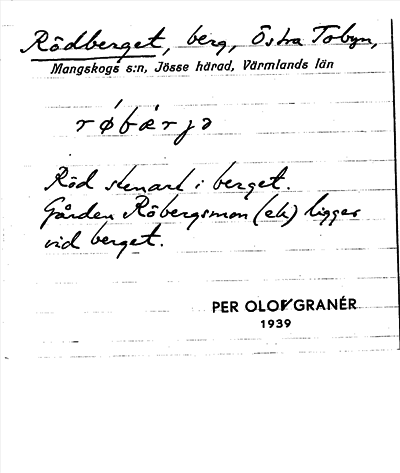 Rödberget, berg, Östra Tobyn,
Mangskogs s:n, Jösse härad, Värmlands län
rø´bæ`rjə
Röd stenart i berget.
Gården Röbergsmon (ek) ligger
vid berget.
PER OLOF GRANÉR
1939